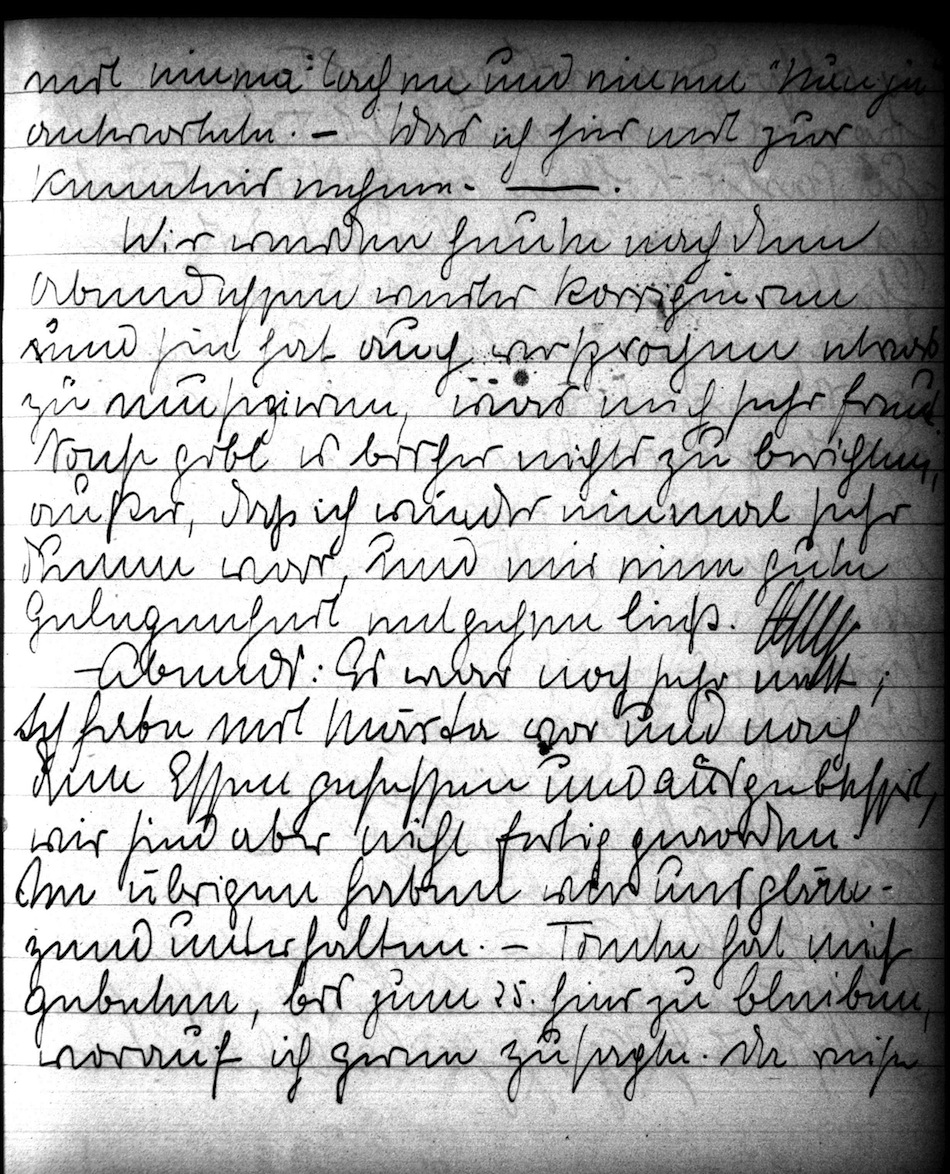 mit einma Lachen und einem "Nun ja"
antworteten. – Was ich hier mit zur
Kenntnis nehme. —.
Wir werden heute nach dem
Abendessen weiter korrigieren
und sie hat auch versprochen etwas
zu musizieren, was mich sehr freut.
Sonst gibt es bisher nichts zu berichten,
außer, dass ich wieder einmal sehr
dumm war, und mir eine gute
Gelegenheit entgehen ließ.
– Abends: Es war noch sehr nett;
Ich habe mit Marta vor und nach
dem Essen gesessen und ausgebessert,
wir sind aber nicht fertig geworden.
Im übrigen haben wir uns glän-
zend unterhalten. – Tante hat mich
gebeten, bis zum 25. hier zu bleiben,
worauf ich gerne zusagte. Da reise